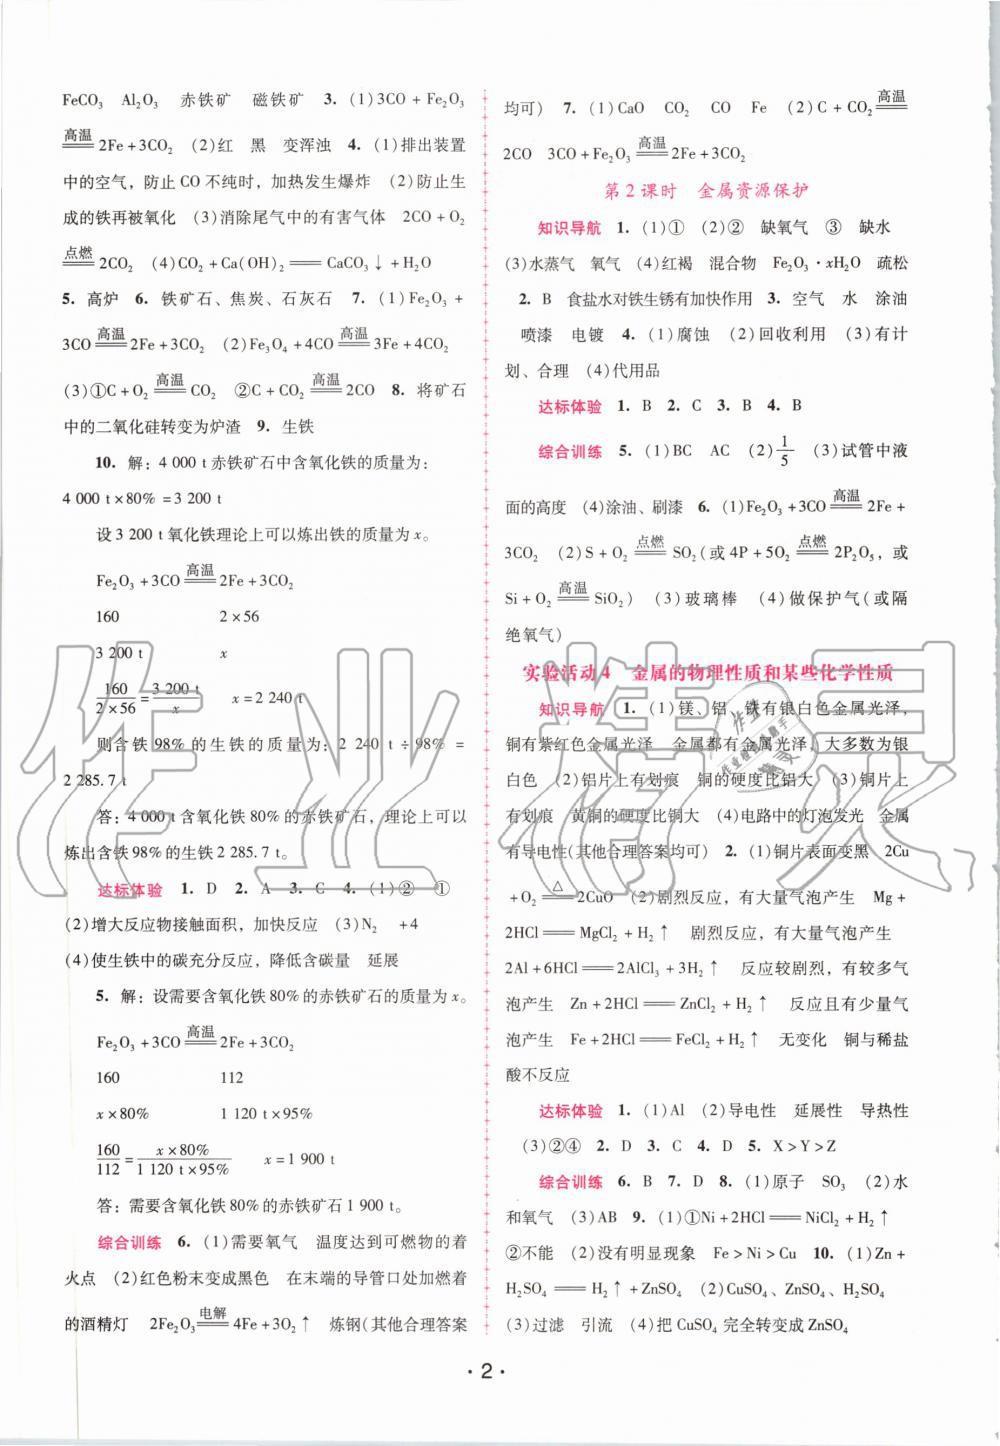 FeCO₃ Al₂O₃ 赤铁矿 磁铁矿 3. (1)3CO+Fe₂O₃
高温══2Fe+3CO₂ (2)红 黑 变浑浊 4. (1)排出装置
中的空气,防止CO不纯时,加热发生爆炸 (2)防止生
成的铁再被氧化 (3)消除尾气中的有害气体 2CO+O₂
点燃══2CO₂ (4)CO₂+Ca(OH)₂══CaCO₃↓+H₂O
5. 高炉 6. 铁矿石、焦炭、石灰石 7. (1)Fe₂O₃+
3CO高温══2Fe+3CO₂ (2)Fe₃O₄+4CO高温══3Fe+4CO₂
(3)①C+O₂高温══CO₂ ②C+CO₂高温══2CO 8. 将矿石
中的二氧化硅转变为炉渣 9. 生铁
10. 解:4 000 t赤铁矿石中含氧化铁的质量为:
4 000 t×80%=3 200 t
设3 200 t氧化铁理论上可以炼出铁的质量为x。
Fe₂O₃+3CO高温══2Fe+3CO₂
160 2×56
3 200 t x
160/(2×56)=3 200 t/x x=2 240 t
则含铁98%的生铁的质量为:2 240 t÷98%=
2 285.7 t
答:4 000 t含氧化铁80%的赤铁矿石,理论上可以
炼出含铁98%的生铁2 285.7 t。
达标体验 1. D 2. A 3. C 4. (1)② ①
(2)增大反应物接触面积,加快反应 (3)N₂ +4
(4)使生铁中的碳充分反应,降低含碳量 延展
5. 解:设需要含氧化铁80%的赤铁矿石的质量为x。
Fe₂O₃+3CO高温══2Fe+3CO₂
160 112
x×80% 1 120 t×95%
160/112=x×80%/(1 120 t×95%) x=1 900 t
答:需要含氧化铁80%的赤铁矿石1 900 t。
综合训练 6. (1)需要氧气 温度达到可燃物的着
火点 (2)红色粉末变成黑色 在末端的导管口处加燃着
的酒精灯 2Fe₂O₃电解══4Fe+3O₂↑ 炼钢(其他合理答案
均可) 7. (1)CaO CO₂ CO Fe (2)C+CO₂高温══
2CO 3CO+Fe₂O₃高温══2Fe+3CO₂
第2课时 金属资源保护
知识导航 1. (1)① (2)② 缺氧气 ③ 缺水
(3)水蒸气 氧气 (4)红褐 混合物 Fe₂O₃·xH₂O 疏松
2. B 食盐水对铁生锈有加快作用 3. 空气 水 涂油
喷漆 电镀 4. (1)腐蚀 (2)回收利用 (3)有计
划、合理 (4)代用品
达标体验 1. B 2. C 3. B 4. B
综合训练 5. (1)BC AC (2)1/5 (3)试管中液
面的高度 (4)涂油、刷漆 6. (1)Fe₂O₃+3CO高温══2Fe+
3CO₂ (2)S+O₂点燃══SO₂(或4P+5O₂点燃══2P₂O₅,或
Si+O₂高温══SiO₂) (3)玻璃棒 (4)做保护气(或隔
绝氧气)
实验活动4 金属的物理性质和某些化学性质
知识导航 1. (1)镁、铝、铁有银白色金属光泽,
铜有紫红色金属光泽 金属都有金属光泽,大多数为银
白色 (2)铝片上有划痕 铜的硬度比铝大 (3)铜片上
有划痕 黄铜的硬度比铜大 (4)电路中的灯泡发光 金属
有导电性(其他合理答案均可) 2. (1)铜片表面变黑 2Cu
+O₂△══2CuO (2)剧烈反应,有大量气泡产生 Mg+
2HCl══MgCl₂+H₂↑ 剧烈反应,有大量气泡产生
2Al+6HCl══2AlCl₃+3H₂↑ 反应较剧烈,有较多气
泡产生 Zn+2HCl══ZnCl₂+H₂↑ 反应且有少量气
泡产生 Fe+2HCl══FeCl₂+H₂↑ 无变化 铜与稀盐
酸不反应
达标体验 1. (1)Al (2)导电性 延展性 导热性
(3)②④ 2. D 3. C 4. D 5. X>Y>Z
综合训练 6. B 7. D 8. (1)原子 SO₃ (2)水
和氧气 (3)AB 9. (1)①Ni+2HCl══NiCl₂+H₂↑
②不能 (2)没有明显现象 Fe>Ni>Cu 10. (1)Zn+
H₂SO₄══H₂↑+ZnSO₄ (2)CuSO₄、ZnSO₄、H₂SO₄
(3)过滤 引流 (4)把CuSO₄完全转变成ZnSO₄
·2·
作业精灵